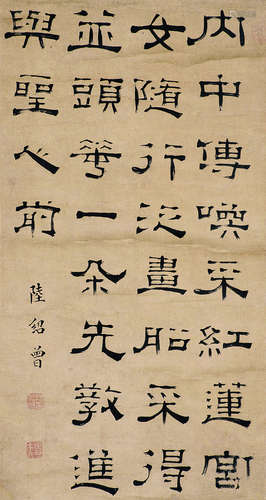 内中傳喚采紅蓮宮
女隨行泛畫船采得
並頭花一朵先教進
與聖人前
陸紹曾